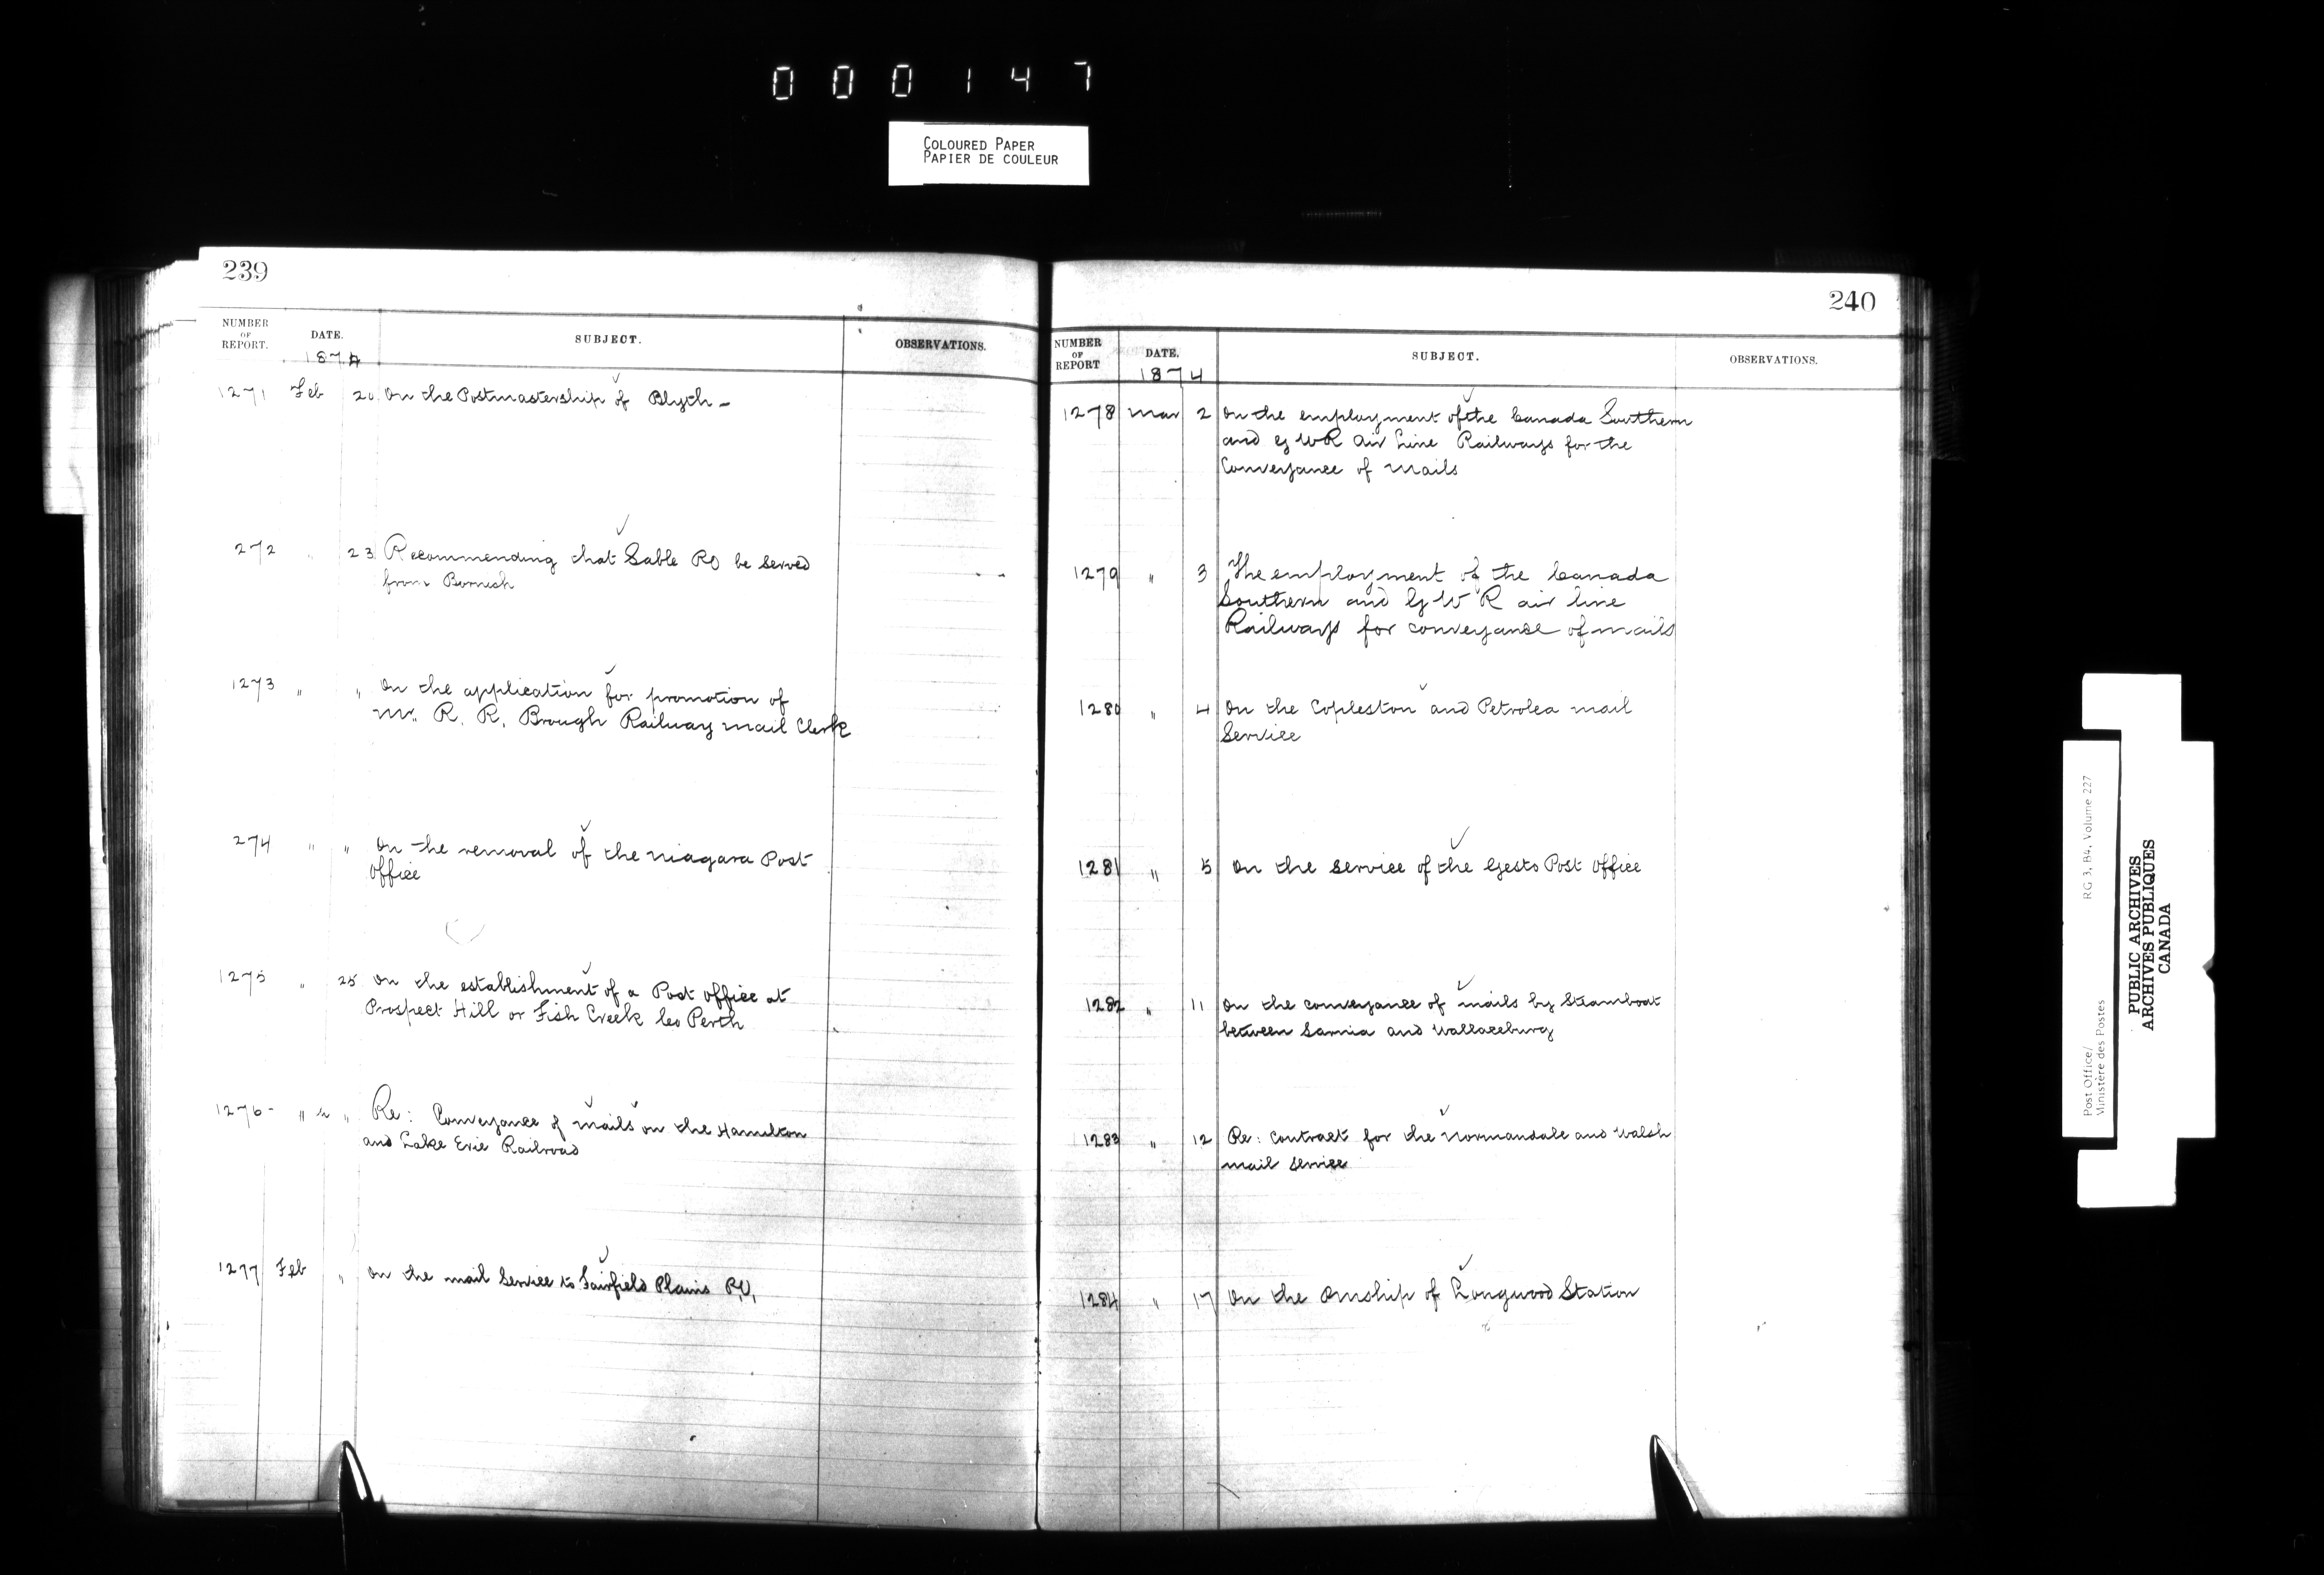 000147
COLOURED PAPER
PAPIER DE COULEUR
239
NUMBER OF REPORT. DATE. SUBJECT. OBSERVATIONS.
1874
1271 Feb 20 On the Postmastership of Blyth -
272 " 23 Recommending that Sable PO be served
from Bornish
1273 " " On the application for promotion of
Mr. R. R. Brough Railway mail Clerk
274 " " On the removal of the Niagara Post
Office
1275 " 25 On the establishment of a Post Office at
Prospect Hill or Fish Creek Co Perth
1276 - " " Re: Conveyance of mails on the Hamilton
and Lake Erie Railroad
1277 Feb " On the mail Service to Fairfield Plains P.O.
240
NUMBER OF REPORT DATE. SUBJECT. OBSERVATIONS.
1874
1278 Mar 2 On the employment of the Canada Southern
and G W R Air Line Railways for the
Conveyance of Mails
1279 " 3 The employment of the Canada
Southern and G W R air line
Railways for conveyance of mails
1280 " 4 On the Copleston and Petrolea mail
Service
1281 " 5 On the service of the Gesto Post Office
1282 " 11 On the conveyance of mails by Steamboat
between Sarnia and Wallaceburg
1283 " 12 Re: Contract for the Normandale and Walsh
mail service
1284 " 17 On the Pmship of Longwood Station
Post Office/ RG 3, B4, Volume 227
Ministère des Postes
PUBLIC ARCHIVES
ARCHIVES PUBLIQUES
CANADA